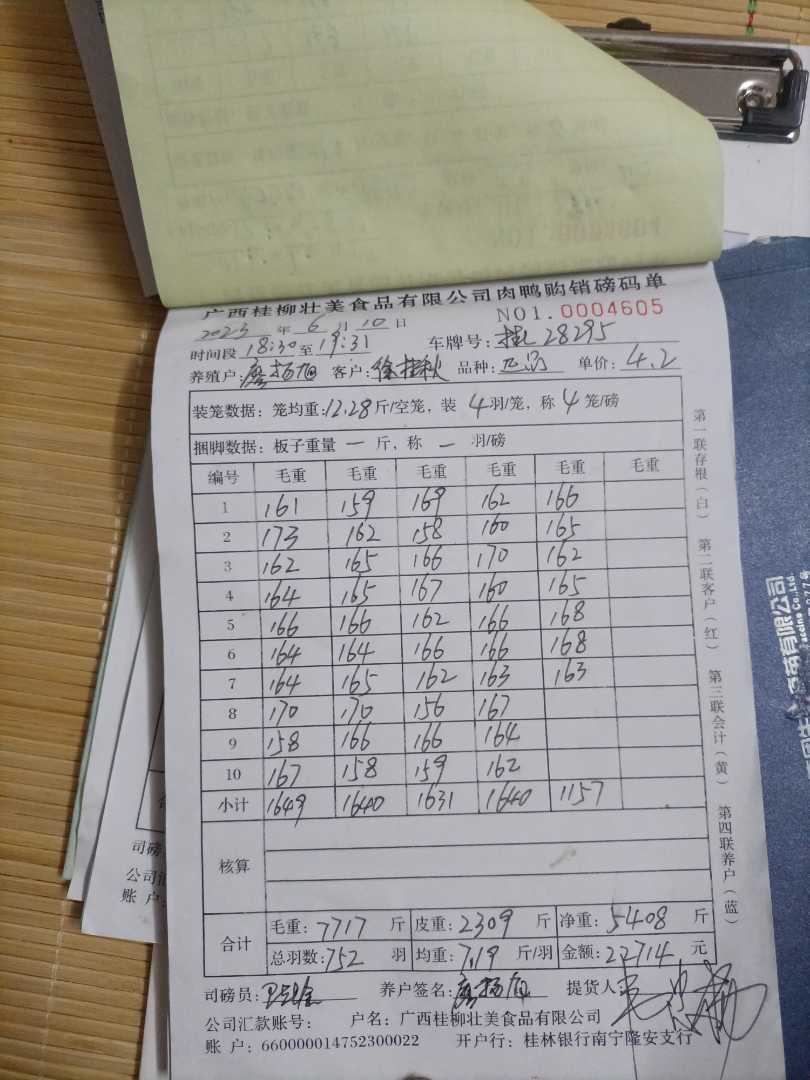 广西桂柳壮美食品有限公司肉鸭购销磅码单
2023年6月10日 NO1.0004605
时间段18:30至19:31 车牌号: 桂L 28295
养殖户:廖扬旭 客户:徐桂秋 品种: 单价:4.2
装笼数据: 笼均重:12.28斤/空笼, 装4羽/笼, 称4笼/磅
捆脚数据: 板子重量 一 斤, 称 一 羽/磅
编号 毛重 毛重 毛重 毛重 毛重 毛重
1 161 159 169 162 166
2 173 162 158 160 165
3 162 165 166 170 162
4 164 165 167 160 165
5 166 166 162 166 168
6 164 164 166 166 168
7 164 165 162 163 163
8 170 170 156 167
9 158 166 166 164
10 167 158 159 162
小计 1649 1640 1631 1640 1157
核算
合计 毛重:7717斤 皮重:2309斤 净重:5408斤
总羽数:752羽 均重:7.19斤/羽 金额:22714元
司磅员: 养户签名:廖扬旭 提货人:
公司汇款账号: 户名:广西桂柳壮美食品有限公司
账 户: 660000014752300022 开户行: 桂林银行南宁隆安支行
第一联存根(白) 第二联客户(红) 第三联会计(黄) 第四联养户(蓝)
司磅
公司汇
账 户:
有限公司